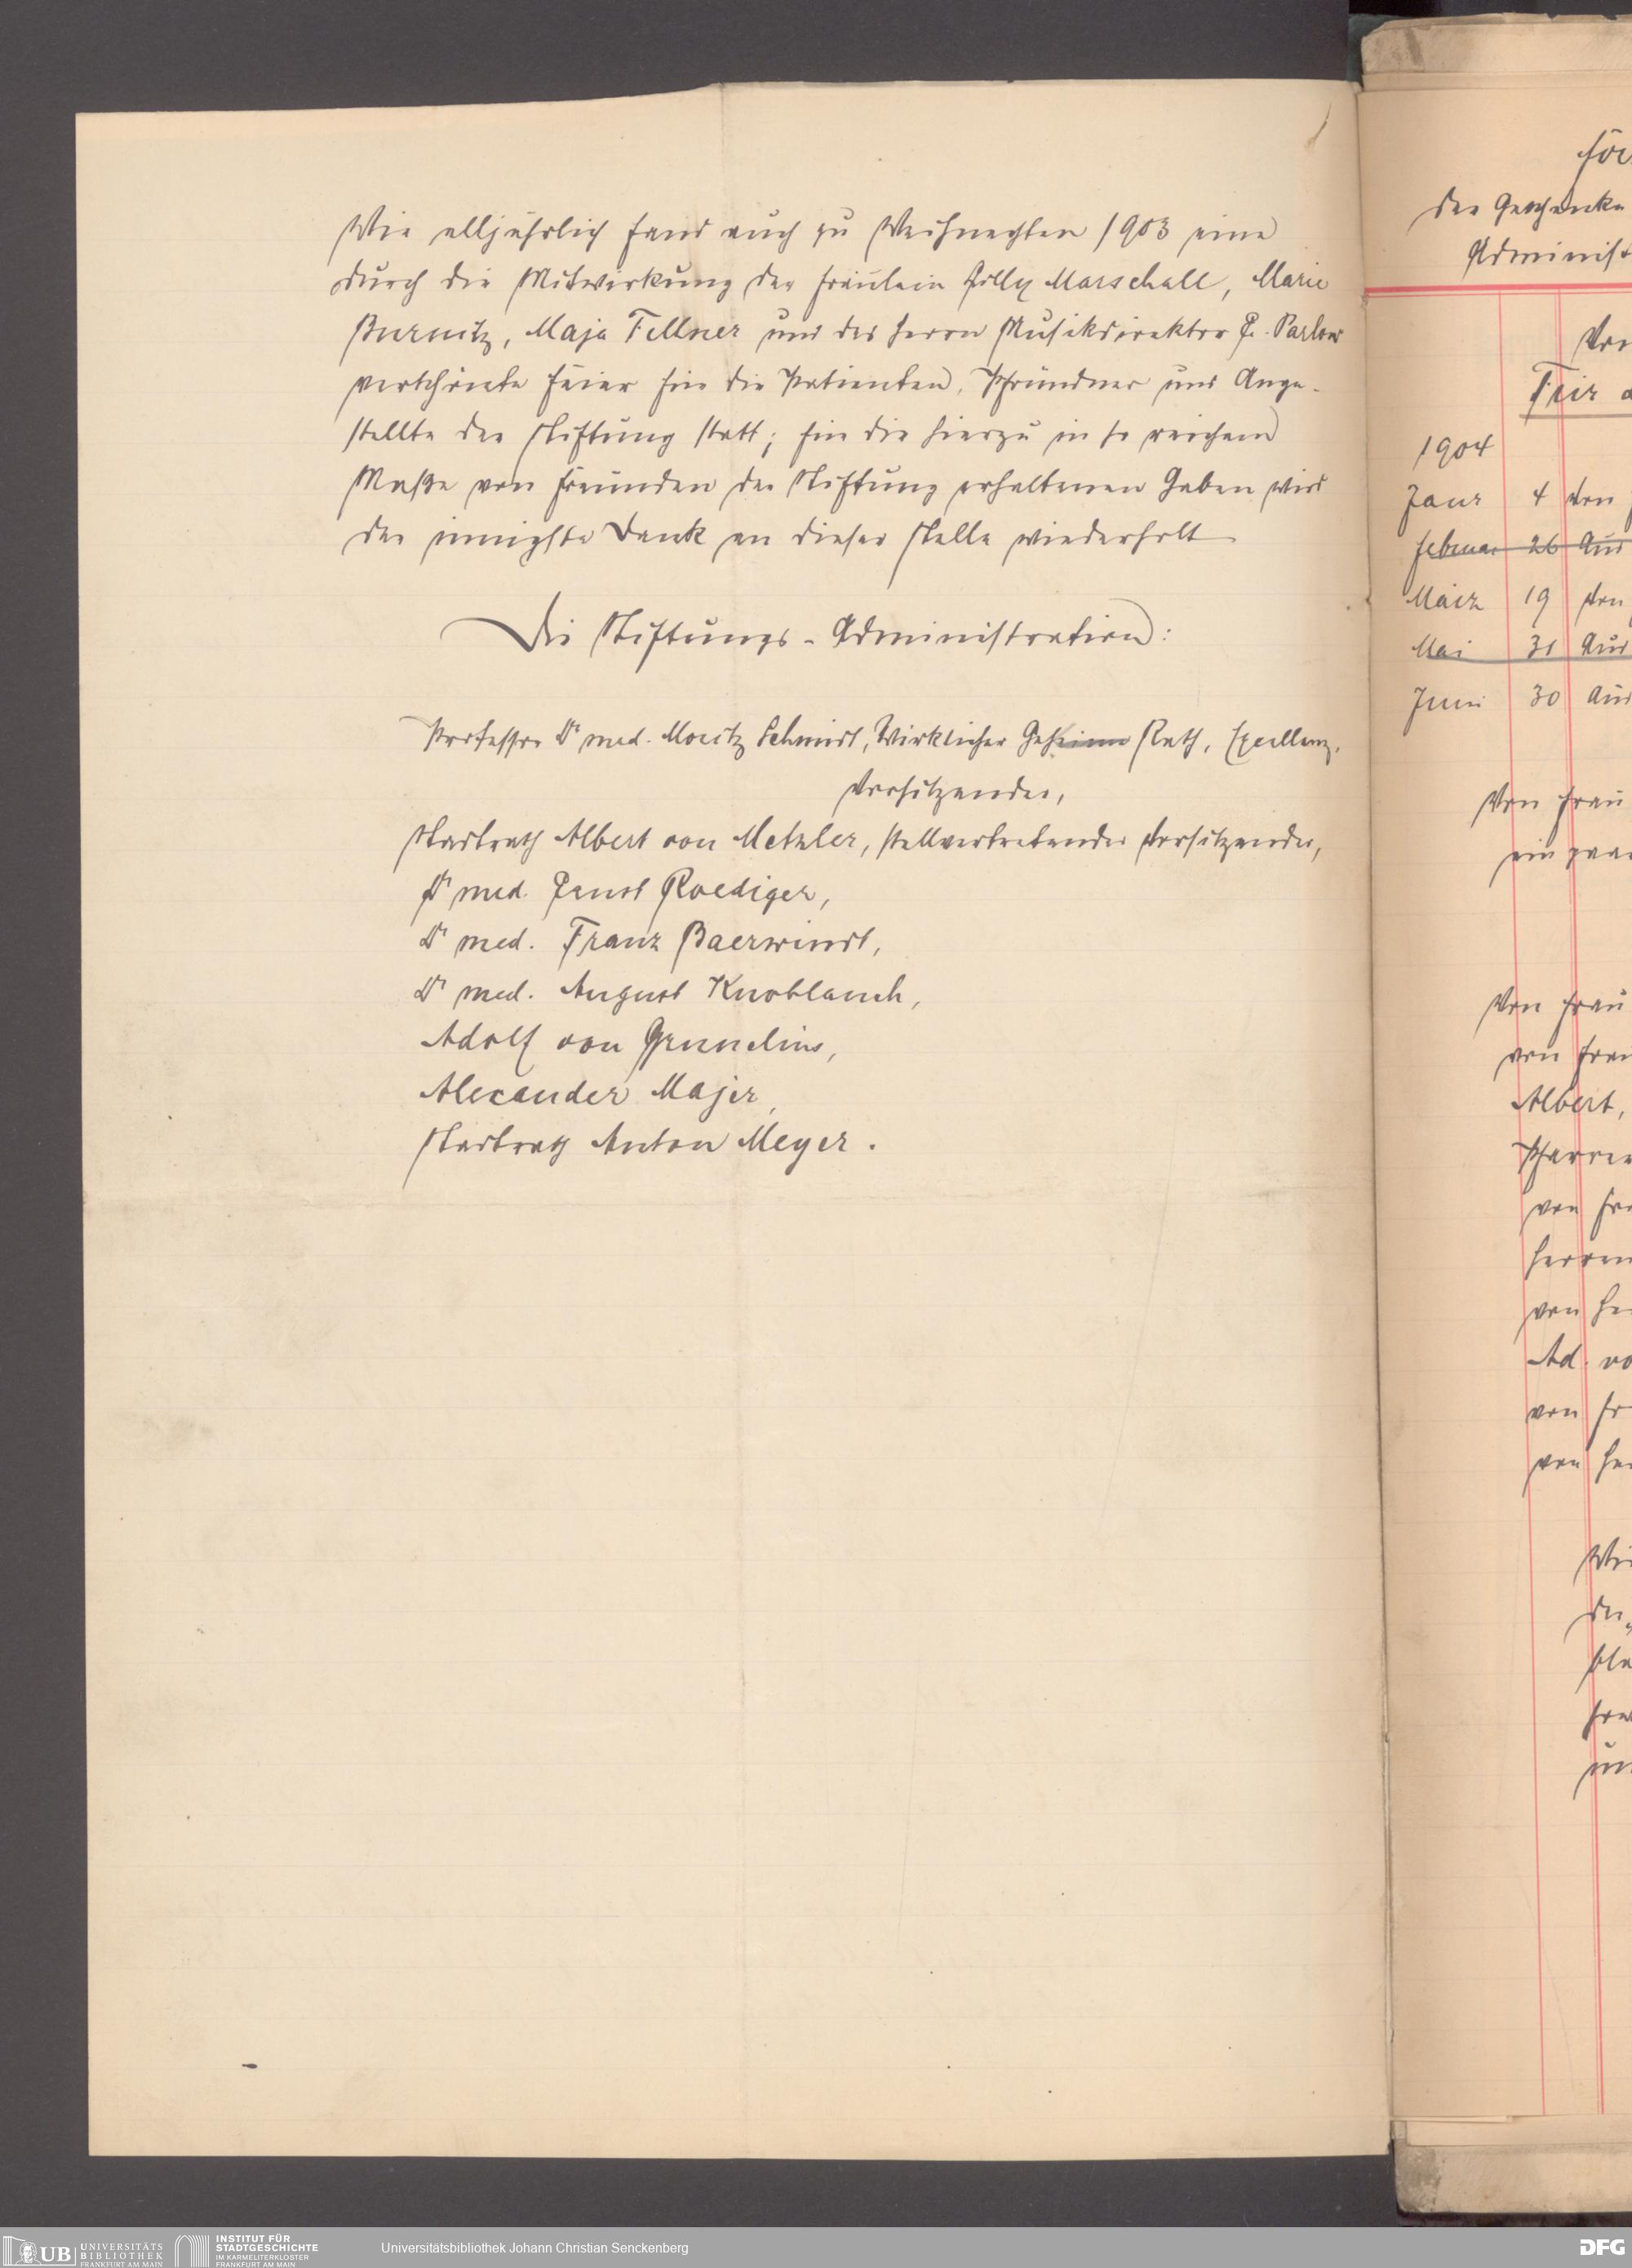 Wie alljährlich fand auch zu Weihnachten 1903 eine
durch die Mitwirkung der Fräulein Cilly Marschall, Marie
Burnitz, Maja Fellner und des Herrn Musikdirektor E. Parlow
verschönte Feier für die Patienten, Pfründner und Ange-
stellte der Stiftung statt; für die hierzu in so reichem
Maße von Freunden der Stiftung erhaltenen Gaben wird
der innigste Dank an dieser Stelle wiederholt
Die Stiftungs-Administration:
Professor Dr med. Moritz Schmidt, Wirklicher Geheimer Rath, Excellenz,
Vorsitzender,
Stadtrath Albert von Metzler, stellvertretender Vorsitzender,
Dr med. Ernst Roediger,
Dr med. Franz Baerwindt,
Dr med. August Knoblauch,
Adolf von Grunelius,
Alexander Majer,
Stadtrath Anton Meyer.
der Geschenke
Administ
Von
Für d
1904
Janr 4 Von
Februar 26 Aus
März 19 Von
Mai 31 Aus
Juni 30 Aus
Von Frau
ein paar
Von Frau
von Frau
Albert,
Pfarrer
von Fr
Herren
von He
Ad. vo
von Fr
von He
UB UNIVERSITÄTS
BIBLIOTHEK
FRANKFURT AM MAIN
INSTITUT FÜR
STADTGESCHICHTE
IM KARMELITERKLOSTER
FRANKFURT AM MAIN
Universitätsbibliothek Johann Christian Senckenberg
DFG